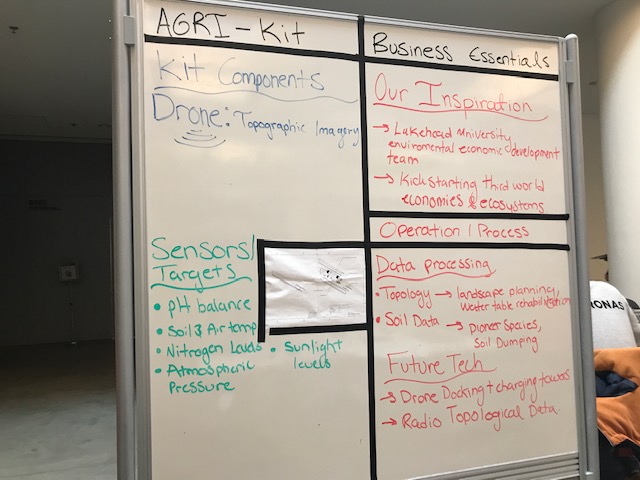 AGRI-Kit
Kit Components
Drone: Topographic Imagery
Sensors/
Targets
• pH balance
• Soil & Air temp
• Nitrogen Levels
• Atmospheric
Pressure
• Sunlight
levels
Business Essentials
Our Inspiration
→ Lakehead University
enviromental economic development
team
→ Kickstarting third world
economies & ecosystems
Operation / Process
Data processing
• Topology → landscape planning,
water table rehabilitation
• Soil Data → pioneer species,
Soil Dumping
Future Tech
→ Drone Docking + charging towers
→ Radio Topological Data.
RONAS